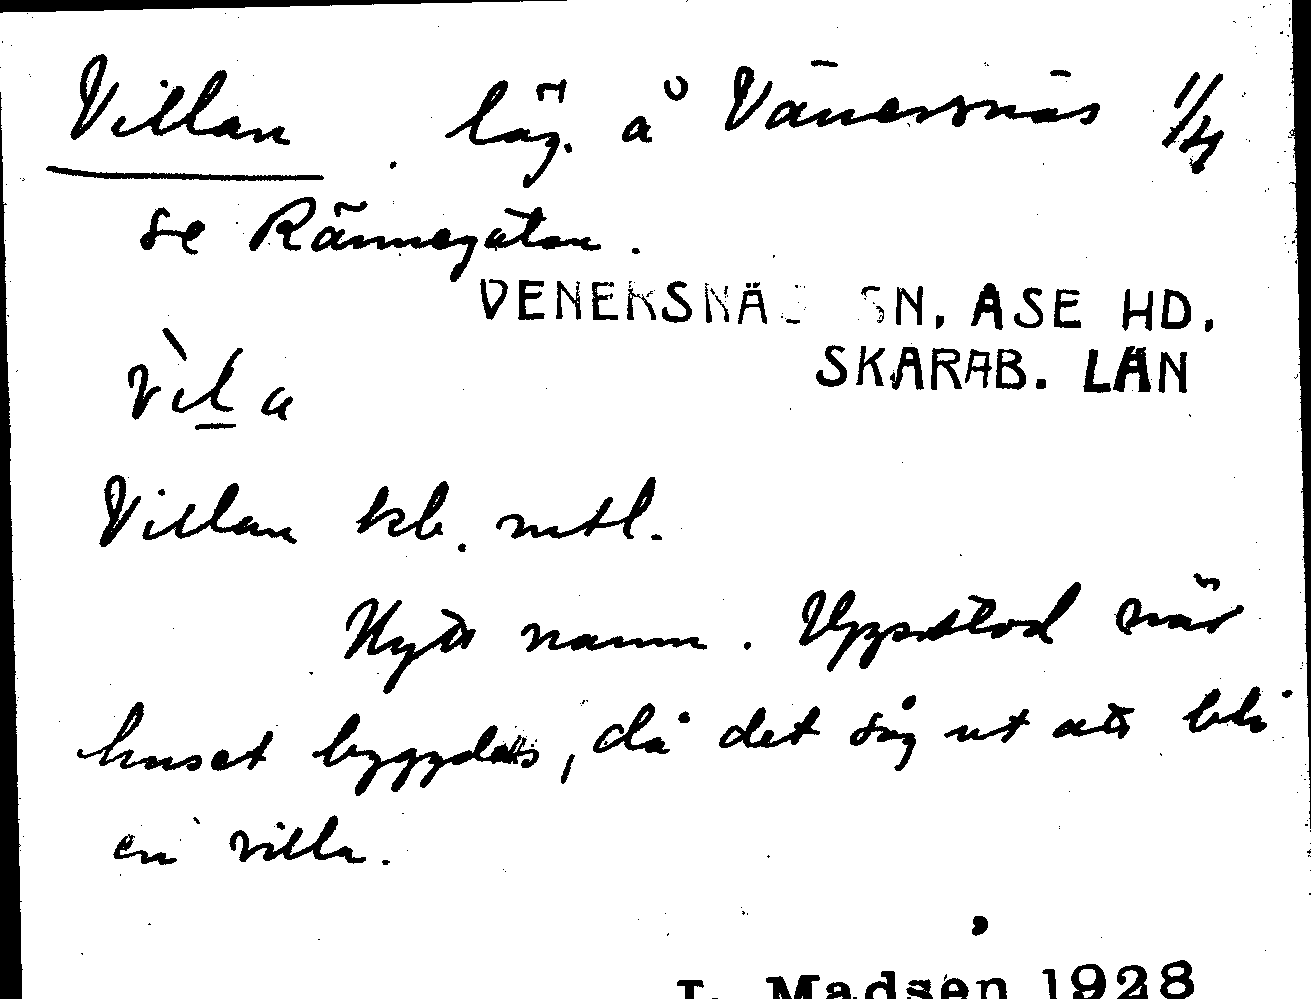 Villan . läg. å Vänersnäs 1/4
se Rännegatan.
VENERSNÄS SN. ASE HD.
SKARAB. LÄN
vìla
Villan kb. mtl.
Nytt namn. Uppstod när
huset byggdes, då det såg ut att bli
en villa.
I. Madsen 1928